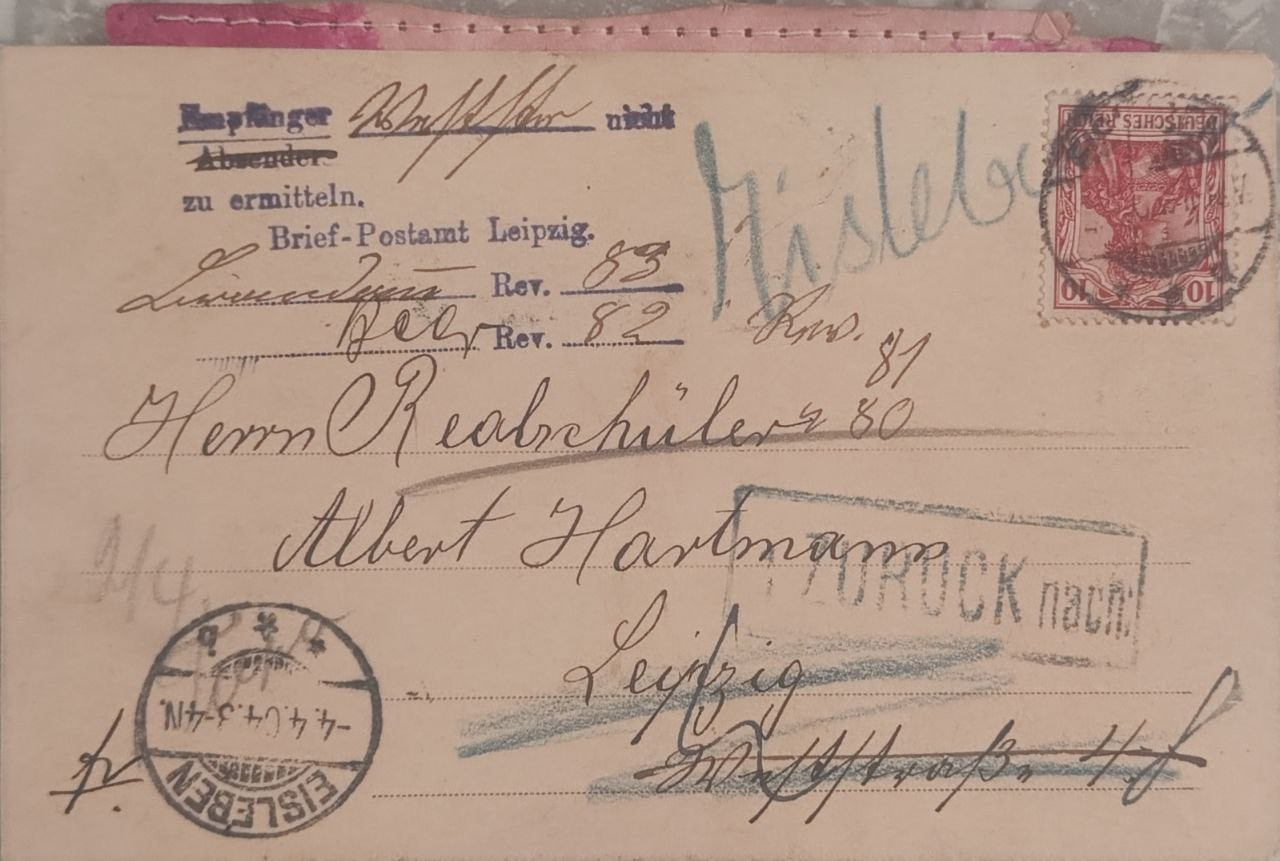 Empfänger Weststr nicht
Absender
zu ermitteln.
Brief-Postamt Leipzig.
Rev. 83
Rev. 82 Rev. 81
Eisleben
DEUTSCHES REICH
10 10
Herrn Realschüler 80
Albert Hartmann
ZURÜCK nach:
Leipzig
Weststraße 4
EISLEBEN
-4.4.04.3-4N.